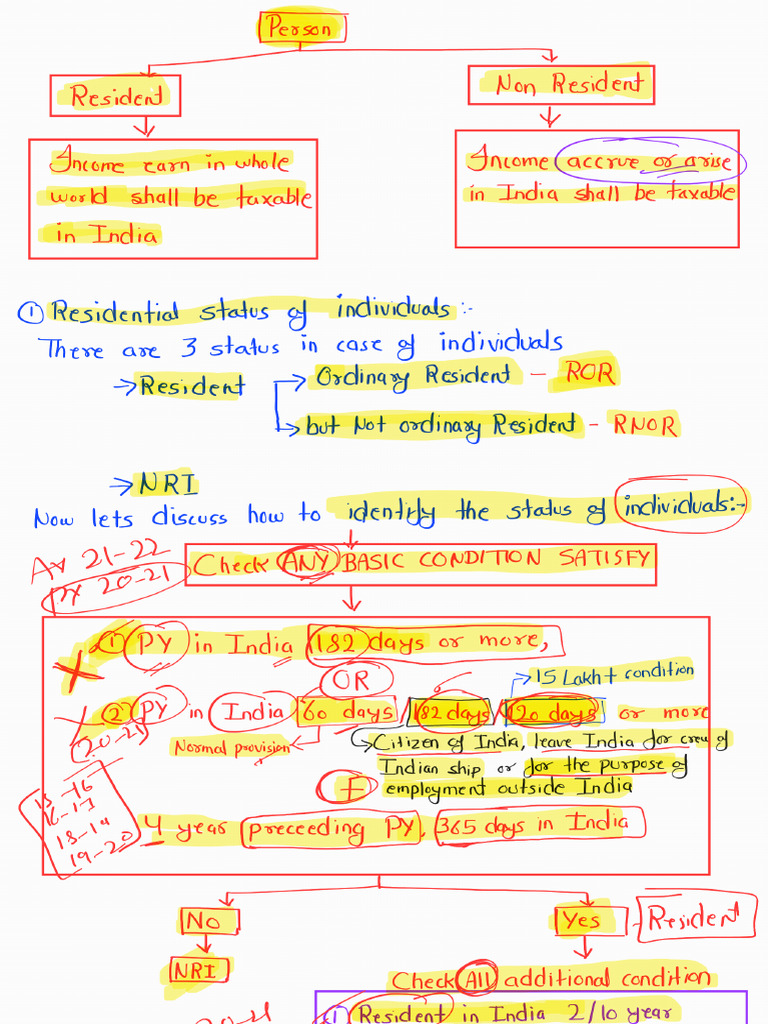 Person
Resident
Non Resident
Income earn in whole
world shall be taxable
in India
Income accrue or arise
in India shall be taxable
① Residential status of individuals :-
There are 3 status in case of individuals
→ Resident → Ordinary Resident - ROR
→ but Not ordinary Resident - RNOR
→ NRI
Now lets discuss how to identify the status of individuals:-
AY 21-22
PY 20-21
Check ANY BASIC CONDITION SATISFY
① PY in India 182 days or more,
OR
→ 15 Lakh+ condition
② PY in India 60 days / 182 days / 120 days or more
(20-21)
Normal provision
Citizen of India, leave India for crew of
Indian ship or for the purpose of
employment outside India
+
16-17
18-19
19-20
4 year preceeding PY, 365 days in India
No
Yes - Resident
NRI
Check All additional condition
20-21
① Resident in India 2/10 year